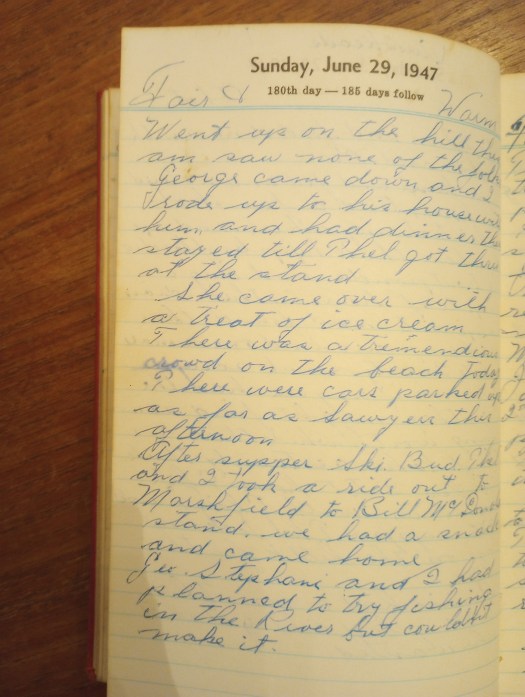 Sunday, June 29, 1947
180th day — 185 days follow
Fair & Warm
Went up on the hill this
am saw none of the
George came down and I
rode up to his house with
him and had dinner
stayed till Phel got thru
at the stand
She came over with
a treat of ice cream
There was a tremendious
crowd on the beach today
There were cars parked up
as far as Sawyers this
afternoon
After supper Ski. Bud. Phel
and I took a ride out to
Marshfield to Bill
stand. we had a snack
and came home
Geo Stephani and I had
planned to try fishing
in the River but couldnt
make it.